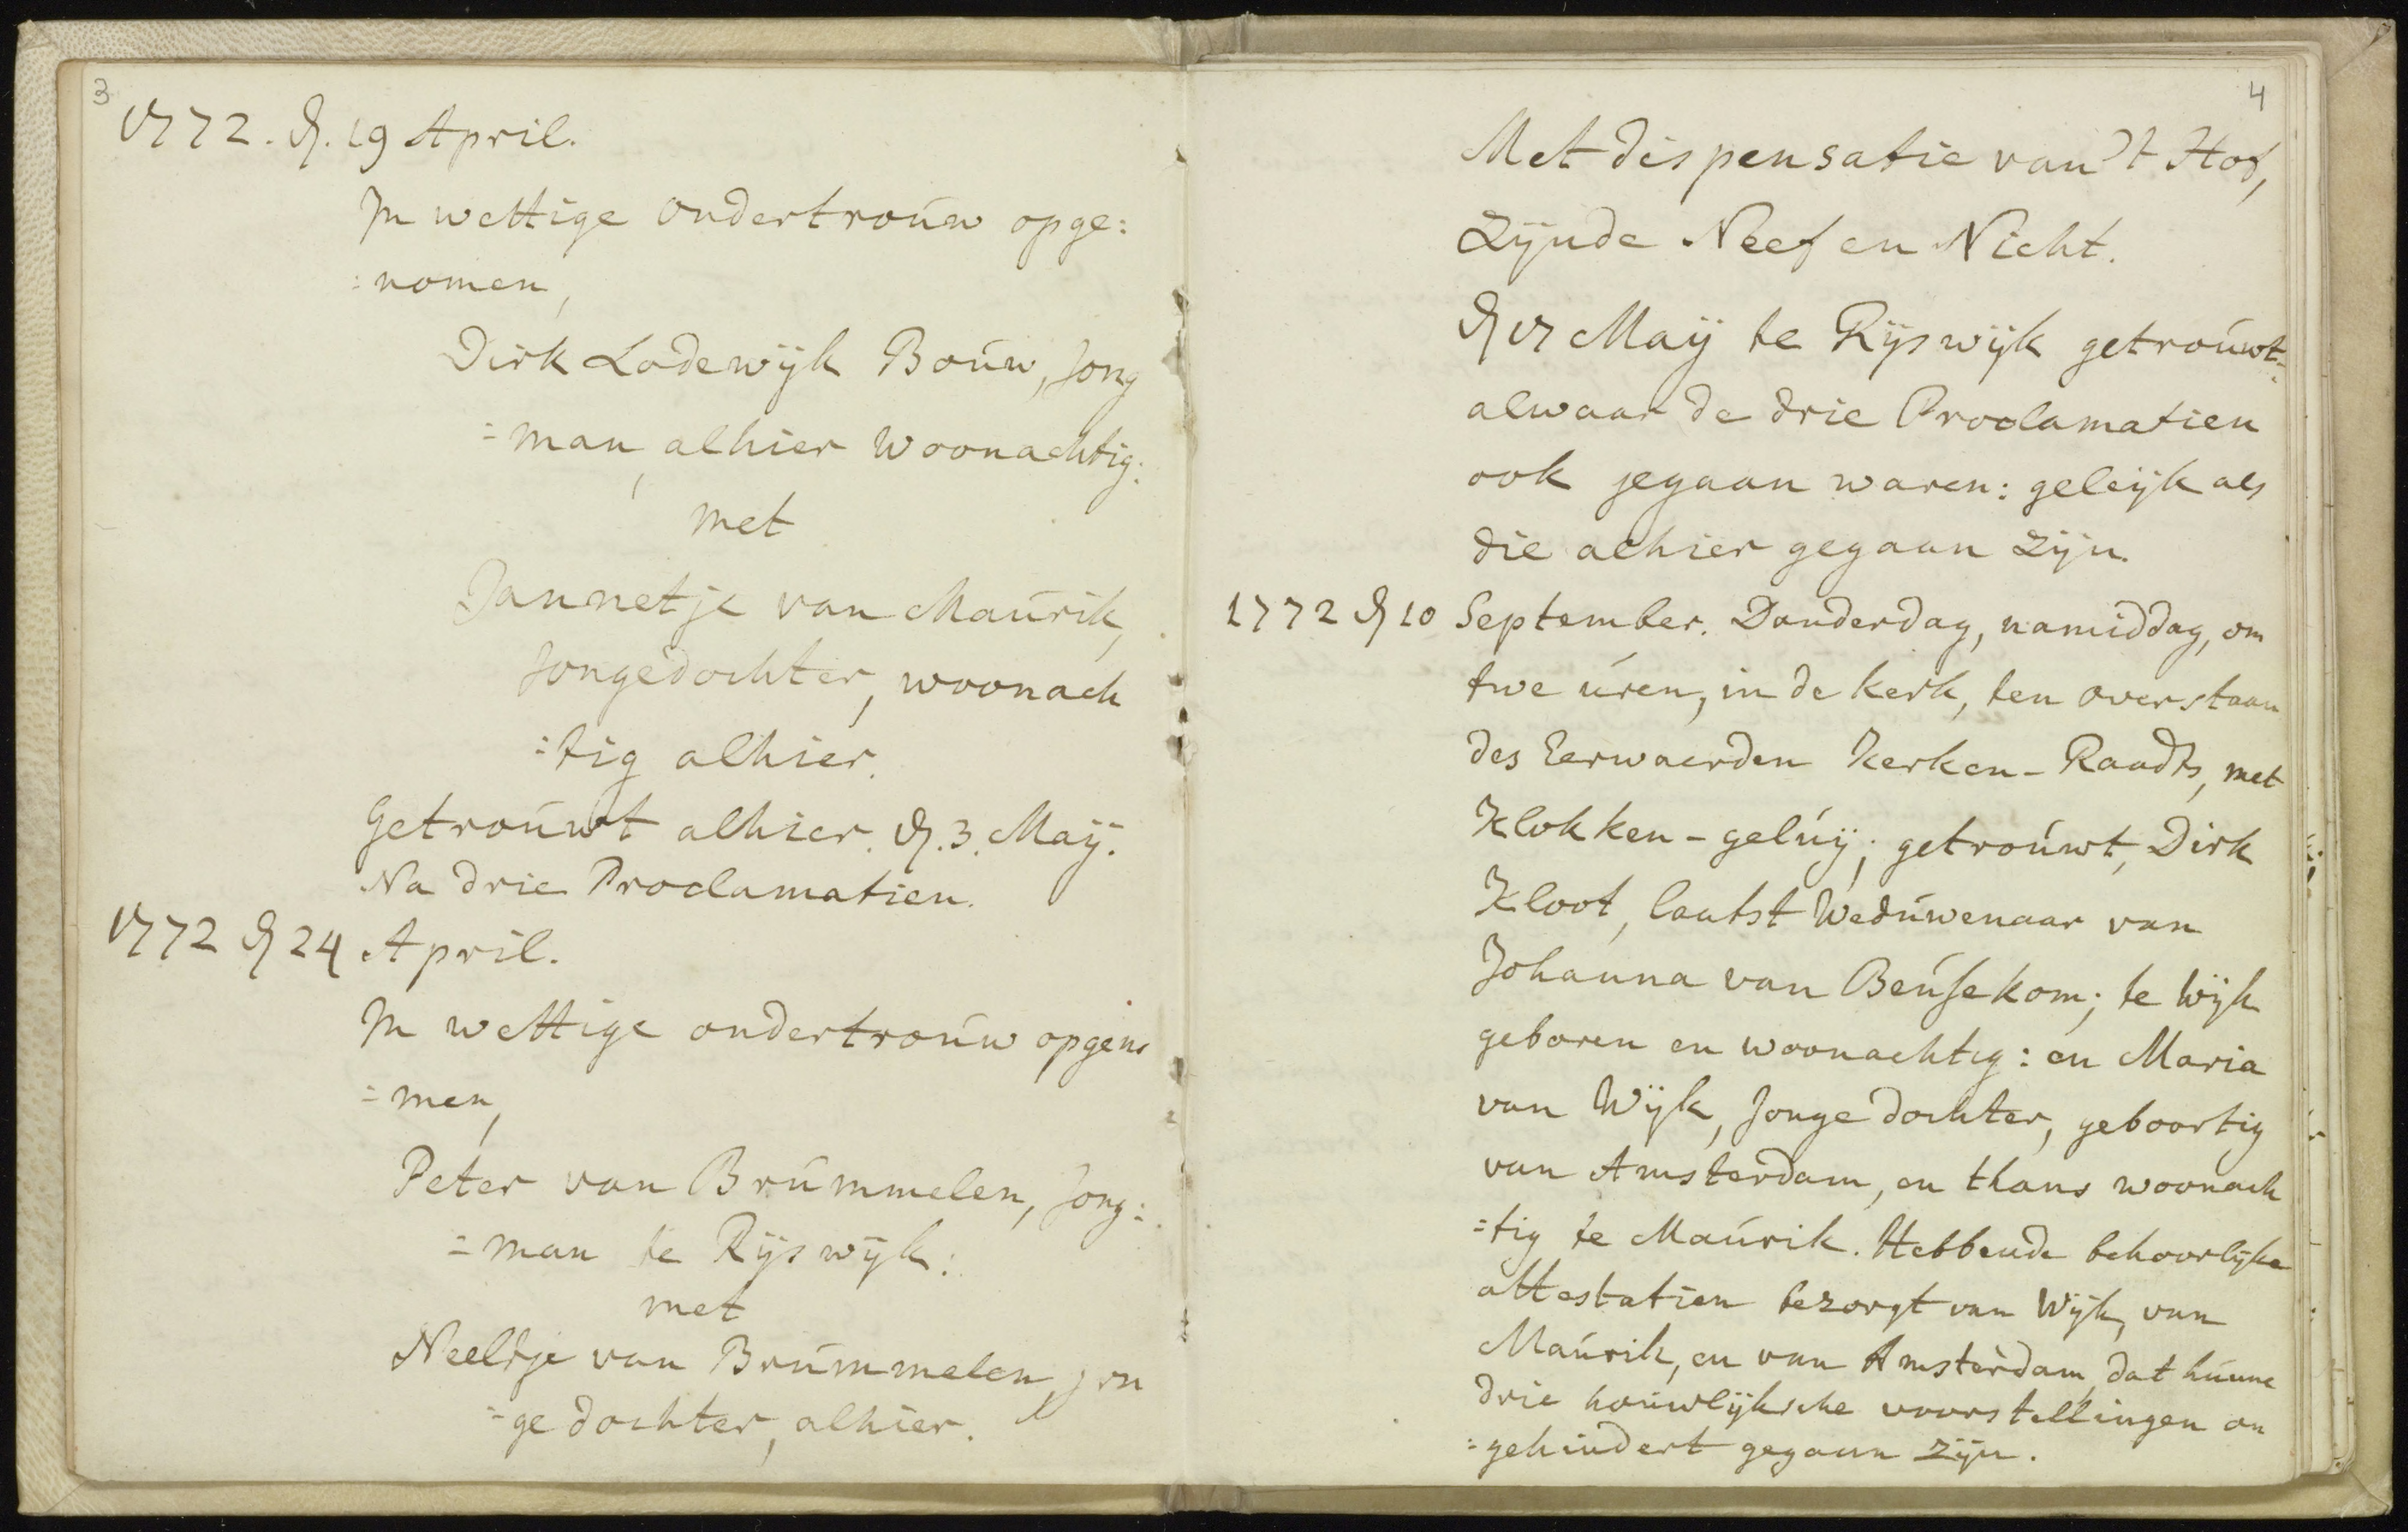 3
1772. d. 19 April.
In wettige ondertrouw opge:
:nomen,
Dirk Lodewijk Bouw, Jong
=man, alhier woonachtig:
met
Jannetje van Maurik,
Jongedochter, woonach
:tig alhier.
Getrouwt alhier. d. 3. Maij.
Na drie Proclamatien.
1772 d 24 April.
In wettige ondertrouw opgeno
=men,
Peter van Brummelen, Jong:
=man te Rijswijk:
met
Neeltje van Brummelen, jon
=ge dochter, alhier.
4
Met dispensatie van 't Hof,
Zijnde Neef en Nicht.
d 17 Maij te Rijswijk getrouwt:
alwaar de drie Proclamatien
ook gegaan waren: geleijk als
die alhier gegaan zijn.
1772 d 10 September. Donderdag, namiddag, om
twe uren, in de kerk, ten overstaan
des Eerwaerden Kerken-Raadts, met
Klokken-geluij; getrouwt, Dirk
Kloot, laatst Weduwenaar van
Johanna van Beusekom; te Wijk
geboren en woonachtig: en Maria
van Wijk, Jonge dochter, geboortig
van Amsterdam, en thans woonach
=tig te Maurik. Hebbende behoorlijke
attestatien bezorgt van Wijk, van
Maurik, en van Amsterdam, dat hunne
drie houwlijksche voorstellingen on
:gehindert gegaan zijn.